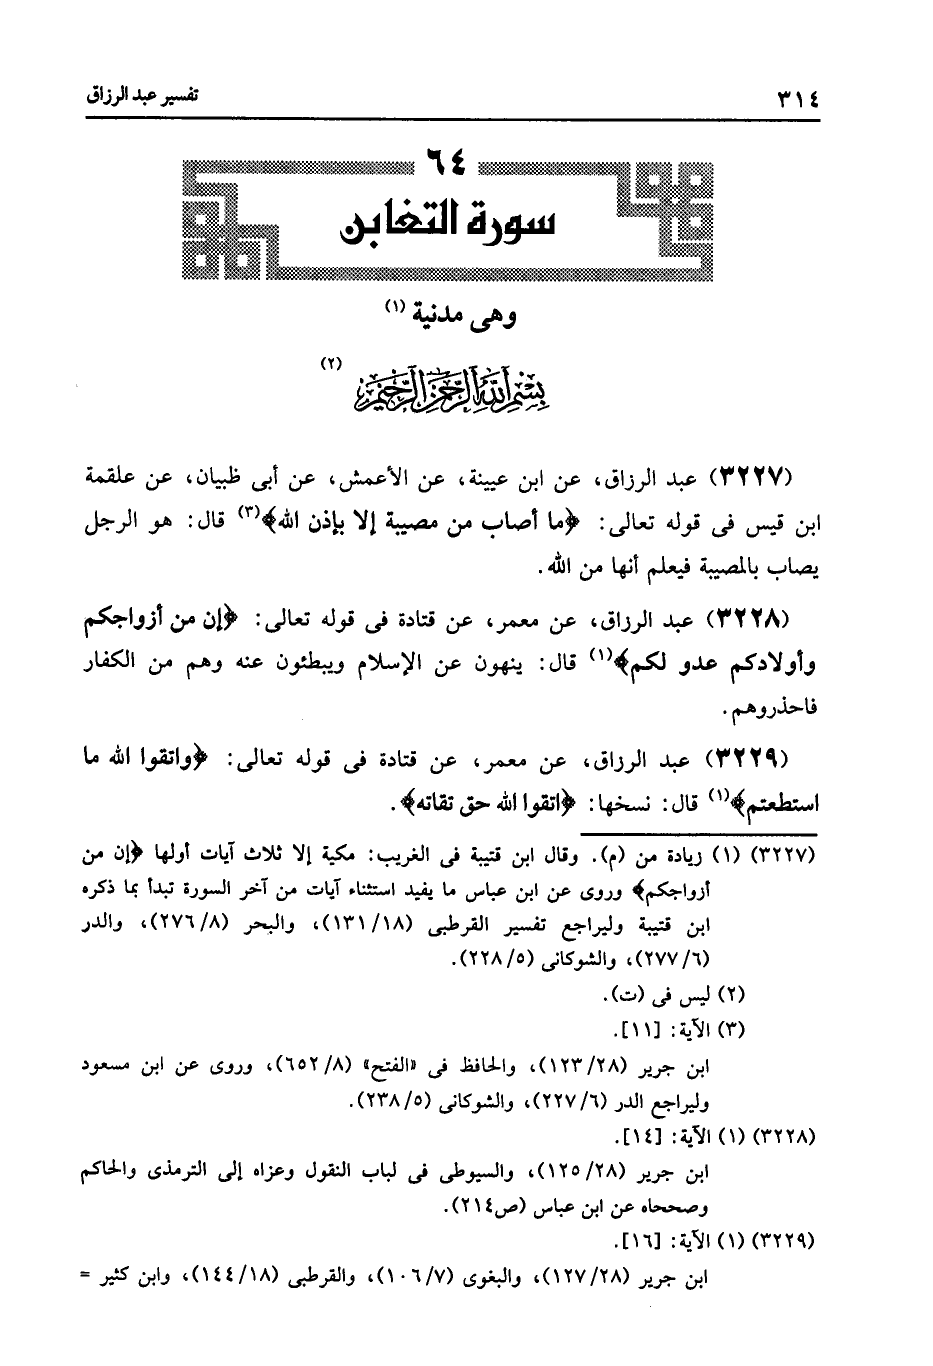 ٣١٤
تفسير عبد الرزاق
٦٤
سورة التغابن
وهى مدنية (١)
بسم الله الرحمن الرحيم (٢)
(٣٢٢٧) عبد الرزاق، عن ابن عيينة، عن الأعمش، عن أبى ظبيان، عن علقمة
ابن قيس فى قوله تعالى: ﴿ما أصاب من مصيبة إلا بإذن الله﴾(٣) قال: هو الرجل
يصاب بالمصيبة فيعلم أنها من الله.
(٣٢٢٨) عبد الرزاق، عن معمر، عن قتادة فى قوله تعالى: ﴿إن من أزواجكم
وأولادكم عدو لكم﴾(١) قال: ينهون عن الإسلام ويبطئون عنه وهم من الكفار
فاحذروهم.
(٣٢٢٩) عبد الرزاق، عن معمر، عن قتادة فى قوله تعالى: ﴿واتقوا الله ما
استطعتم﴾(١) قال: نسخها: ﴿اتقوا الله حق تقاته﴾.
(٣٢٢٧) (١) زيادة من (م). وقال ابن قتيبة فى الغريب: مكية إلا ثلاث آيات أولها ﴿إن من
أزواجكم﴾ وروى عن ابن عباس ما يفيد استثناء آيات من آخر السورة تبدأ بما ذكره
ابن قتيبة وليراجع تفسير القرطبى (١٣١/١٨)، والبحر (٢٧٦/٨)، والدر
(٢٧٧/٦)، والشوكانى (٢٢٨/٥).
(٢) ليس فى (ت).
(٣) الآية: [١١].
ابن جرير (١٢٣/٢٨)، والحافظ فى «الفتح» (٦٥٢/٨)، وروى عن ابن مسعود
وليراجع الدر (٢٢٧/٦)، والشوكانى (٢٣٨/٥).
(٣٢٢٨) (١) الآية: [١٤].
ابن جرير (١٢٥/٢٨)، والسيوطى فى لباب النقول وعزاه إلى الترمذى والحاكم
وصححاه عن ابن عباس (ص٢١٤).
(٣٢٢٩) (١) الآية: [١٦].
ابن جرير (١٢٧/٢٨)، والبغوى (١٠٦/٧)، والقرطبى (١٤٤/١٨)، وابن كثير =